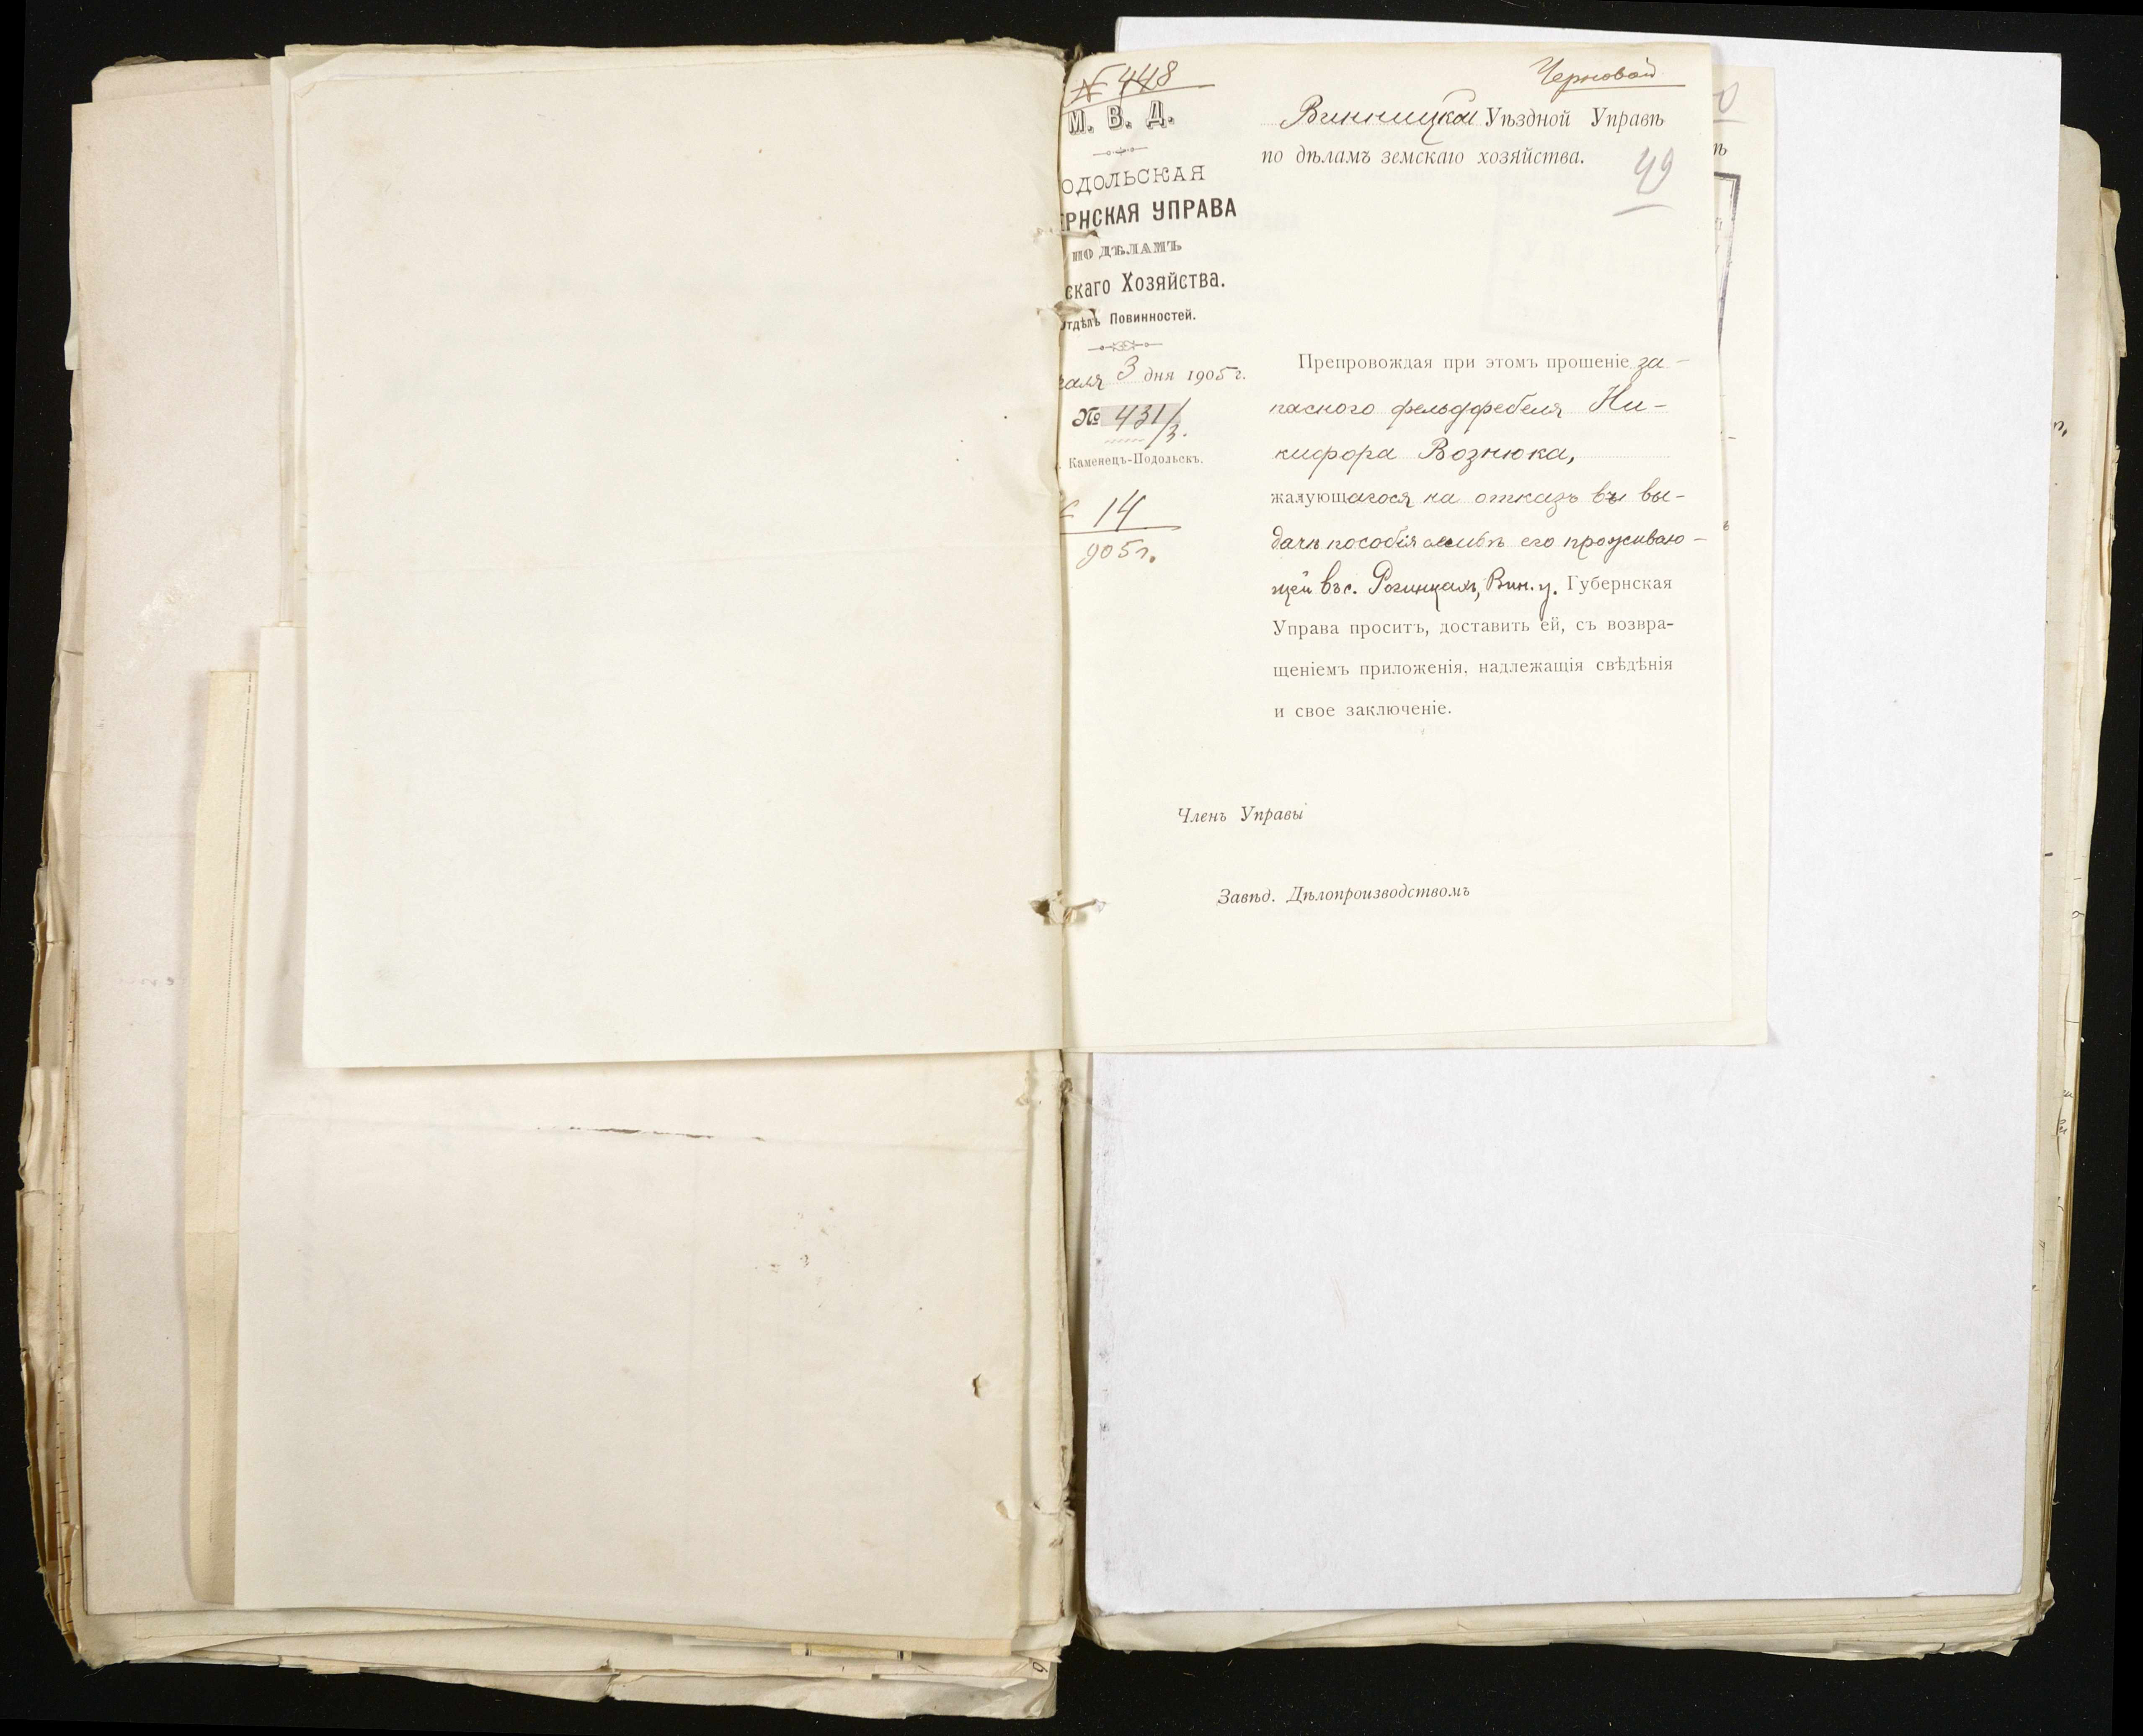 № 448
М. В. Д.
ОДОЛЬСКАЯ
ЕРНСКАЯ УПРАВА
ПО ДѢЛАМЪ
скаго Хозяйства.
Отдѣлъ Повинностей.
раля 3 дня 1905 г.
№ 431/3.
Каменецъ-Подольскъ.
14
905 г.
Черновой
Винницкой Уѣздной Управѣ
по дѣламъ земскаго хозяйства.
49
Препровождая при этомъ прошеніе за-
паснаго фельдфебеля Ни-
кифора Вознюка,
жалующагося на отказъ въ вы-
дачѣ пособія семьѣ его проживаю-
щей въ с. Рогинцахъ, Вин. у. Губернская
Управа проситъ, доставить ей, съ возвра-
щеніемъ приложенія, надлежащія свѣдѣнія
и свое заключеніе.
Членъ Управы
Завѣд. Дѣлопроизводствомъ